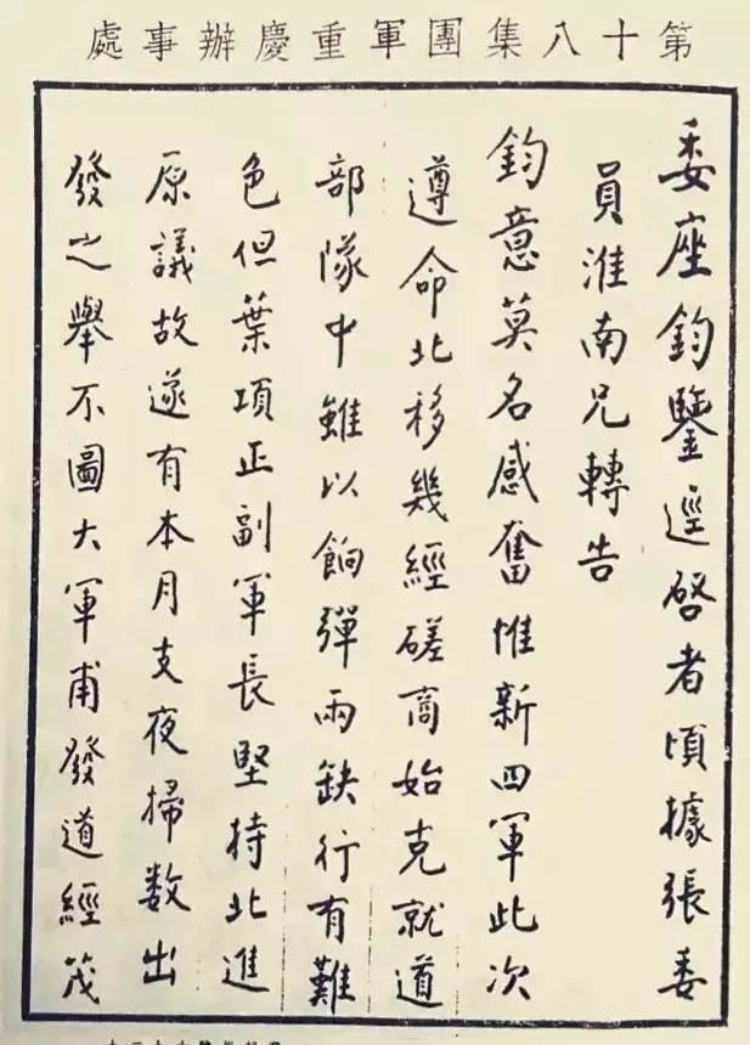 第十八集團軍重慶辦事處
委座鈞鑒逕啓者頃據張委
員淮南兄轉告
鈞意莫名感奮惟新四軍此次
遵命北移幾經磋商始克就道
部隊中雖以餉彈兩缺行有難
色但葉項正副軍長堅持北進
原議故遂有本月支夜掃数出
發之舉不圖大軍甫發道經茂